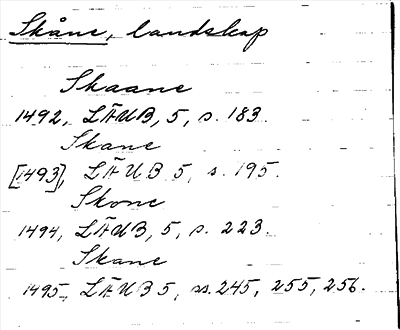 Skåne, landskap
Skaane
1492, LÄUB, 5, s. 183.
Skane
[1493], LÄUB 5, s. 195.
Skone
1494, LÄUB, 5, s. 223.
Skane
1495, LÄUB 5, ss. 245, 255, 256.